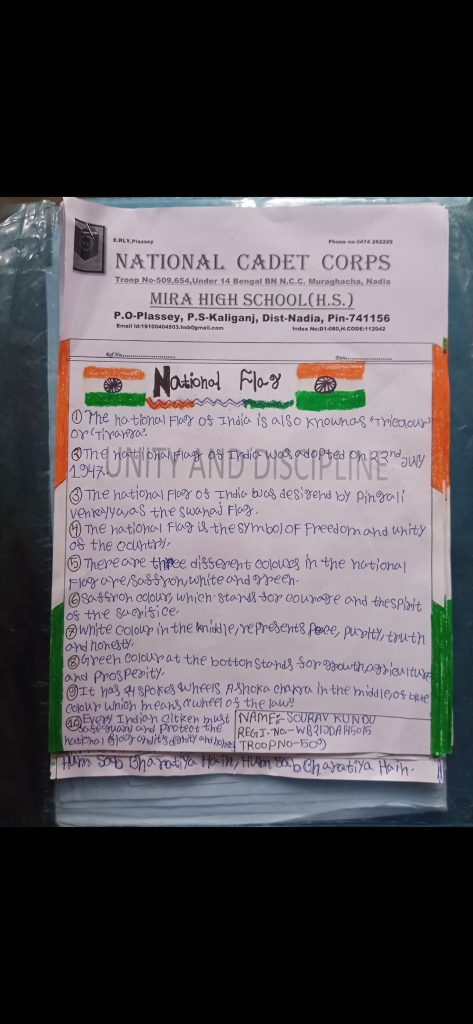 E.RLY,Plassey Phone no-3474 262220
NATIONAL CADET CORPS
Troop No-509,654,Under 14 Bengal BN N.C.C. Muraghacha, Nadia
MIRA HIGH SCHOOL(H.S.)
P.O-Plassey, P.S-Kaliganj, Dist-Nadia, Pin-741156
Email id:19100404503.hsb@gmail.com Index No:D1-080,H.CODE:112042
Ref No Date
National Flag
① The national Flag of India is also known as 'Tricolour'
or 'Tiranga'.
② The national Flag of India was adopted on 22nd July
1947.
UNITY AND DISCIPLINE
③ The national Flag of India was desigend by Pingali
venkayya, as the swaraj Flag.
④ The national Flag is the symbol of Freedom and unity
of the country.
⑤ There are three different colours in the national
Flag are, Saffron, white and green.
⑥ Saffron colour, which stands for courage and the spirit
of the sacrifice.
⑦ White colour in the middle, represents peace, purity, truth
and honesty.
⑧ Green colour at the botton stands for growth, agriculture
and Prosperity.
⑨ It has 24 spokes wheels Ashoka chakra in the middle, of blue
colour which means a wheel of the law?
⑩ Every Indian citizen must
safeguard and protect the
national flag and its dignity and honor
NAME:- SOURAV KUNDU
REGI.NO.- WB21JDA145015
TROOP NO-509
Hum Sab Bharatiya Hain, Hum Sab Bharatiya Hain.